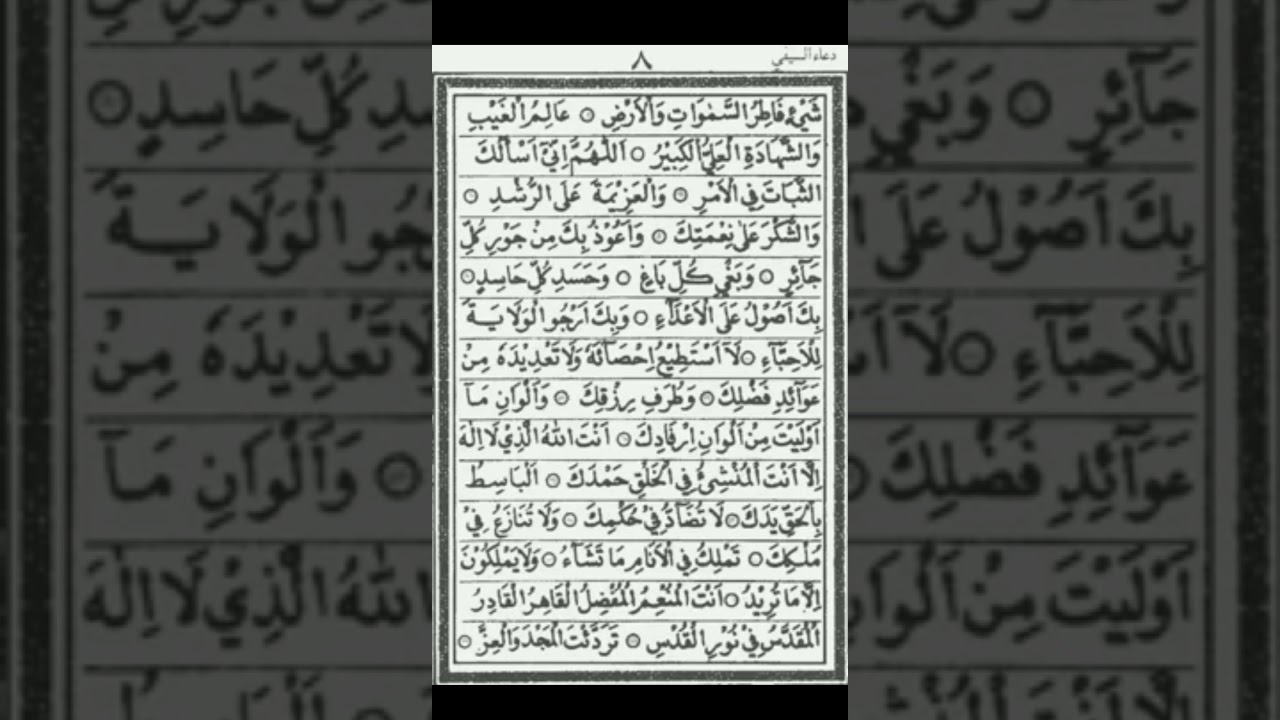 دعاء السيفي
٨
شَيْءٍ فَاطِرُ السَّمٰوَاتِ وَالْاَرْضِ ۞ عَالِمُ الْغَيْبِ
وَالشَّهَادَةِ الْعَلِيُّ الْكَبِيْرُ ۞ اَللّٰهُمَّ اِنِّيْٓ اَسْأَلُكَ
الثَّبَاتَ فِي الْاَمْرِ ۞ وَالْعَزِيْمَةَ عَلَى الرُّشْدِ ۞
وَالشُّكْرَ عَلٰى نِعْمَتِكَ ۞ وَاَعُوْذُ بِكَ مِنْ جَوْرِ كُلِّ
جَآئِرٍ ۞ وَبَغْيِ كُلِّ بَاغٍ ۞ وَحَسَدِ كُلِّ حَاسِدٍ ۞
بِكَ اَصُوْلُ عَلَى الْاَعْدَآءِ ۞ وَبِكَ اَرْجُو الْوَلَايَةَ
لِلْاَحِبَّآءِ ۞ لَآ اَسْتَطِيْعُ اِحْصَآئَهٗ وَلَا تَعْدِيْدَهٗ مِنْ
عَوَآئِدِ فَضْلِكَ ۞ وَطُرَفِ رِزْقِكَ ۞ وَاَلْوَانِ مَآ
اَوْلَيْتَ مِنْ اَلْوَانِ اِرْفَادِكَ ۞ اَنْتَ اللّٰهُ الَّذِيْ لَا اِلٰهَ
اِلَّا اَنْتَ الْمُنْشِئُ فِي الْخَلْقِ حَمْدَكَ ۞ اَلْبَاسِطُ
بِالْحَقِّ يَدَكَ ۞ لَا تُضَآدُّ فِيْ حُكْمِكَ ۞ وَلَا تُنَازَعُ فِيْ
مُلْكِكَ ۞ تَمْلِكُ فِي الْاَنَامِ مَا تَشَآءُ ۞ وَلَا يَمْلِكُوْنَ
اِلَّا مَا تُرِيْدُ ۞ اَنْتَ الْمُنْعِمُ الْمُفْضِلُ الْقَاهِرُ الْقَادِرُ
الْمُقَدَّسُ فِيْ نُوْرِ الْقُدْسِ ۞ تَرَدَّيْتَ الْمَجْدَ وَالْعِزَّ ۞